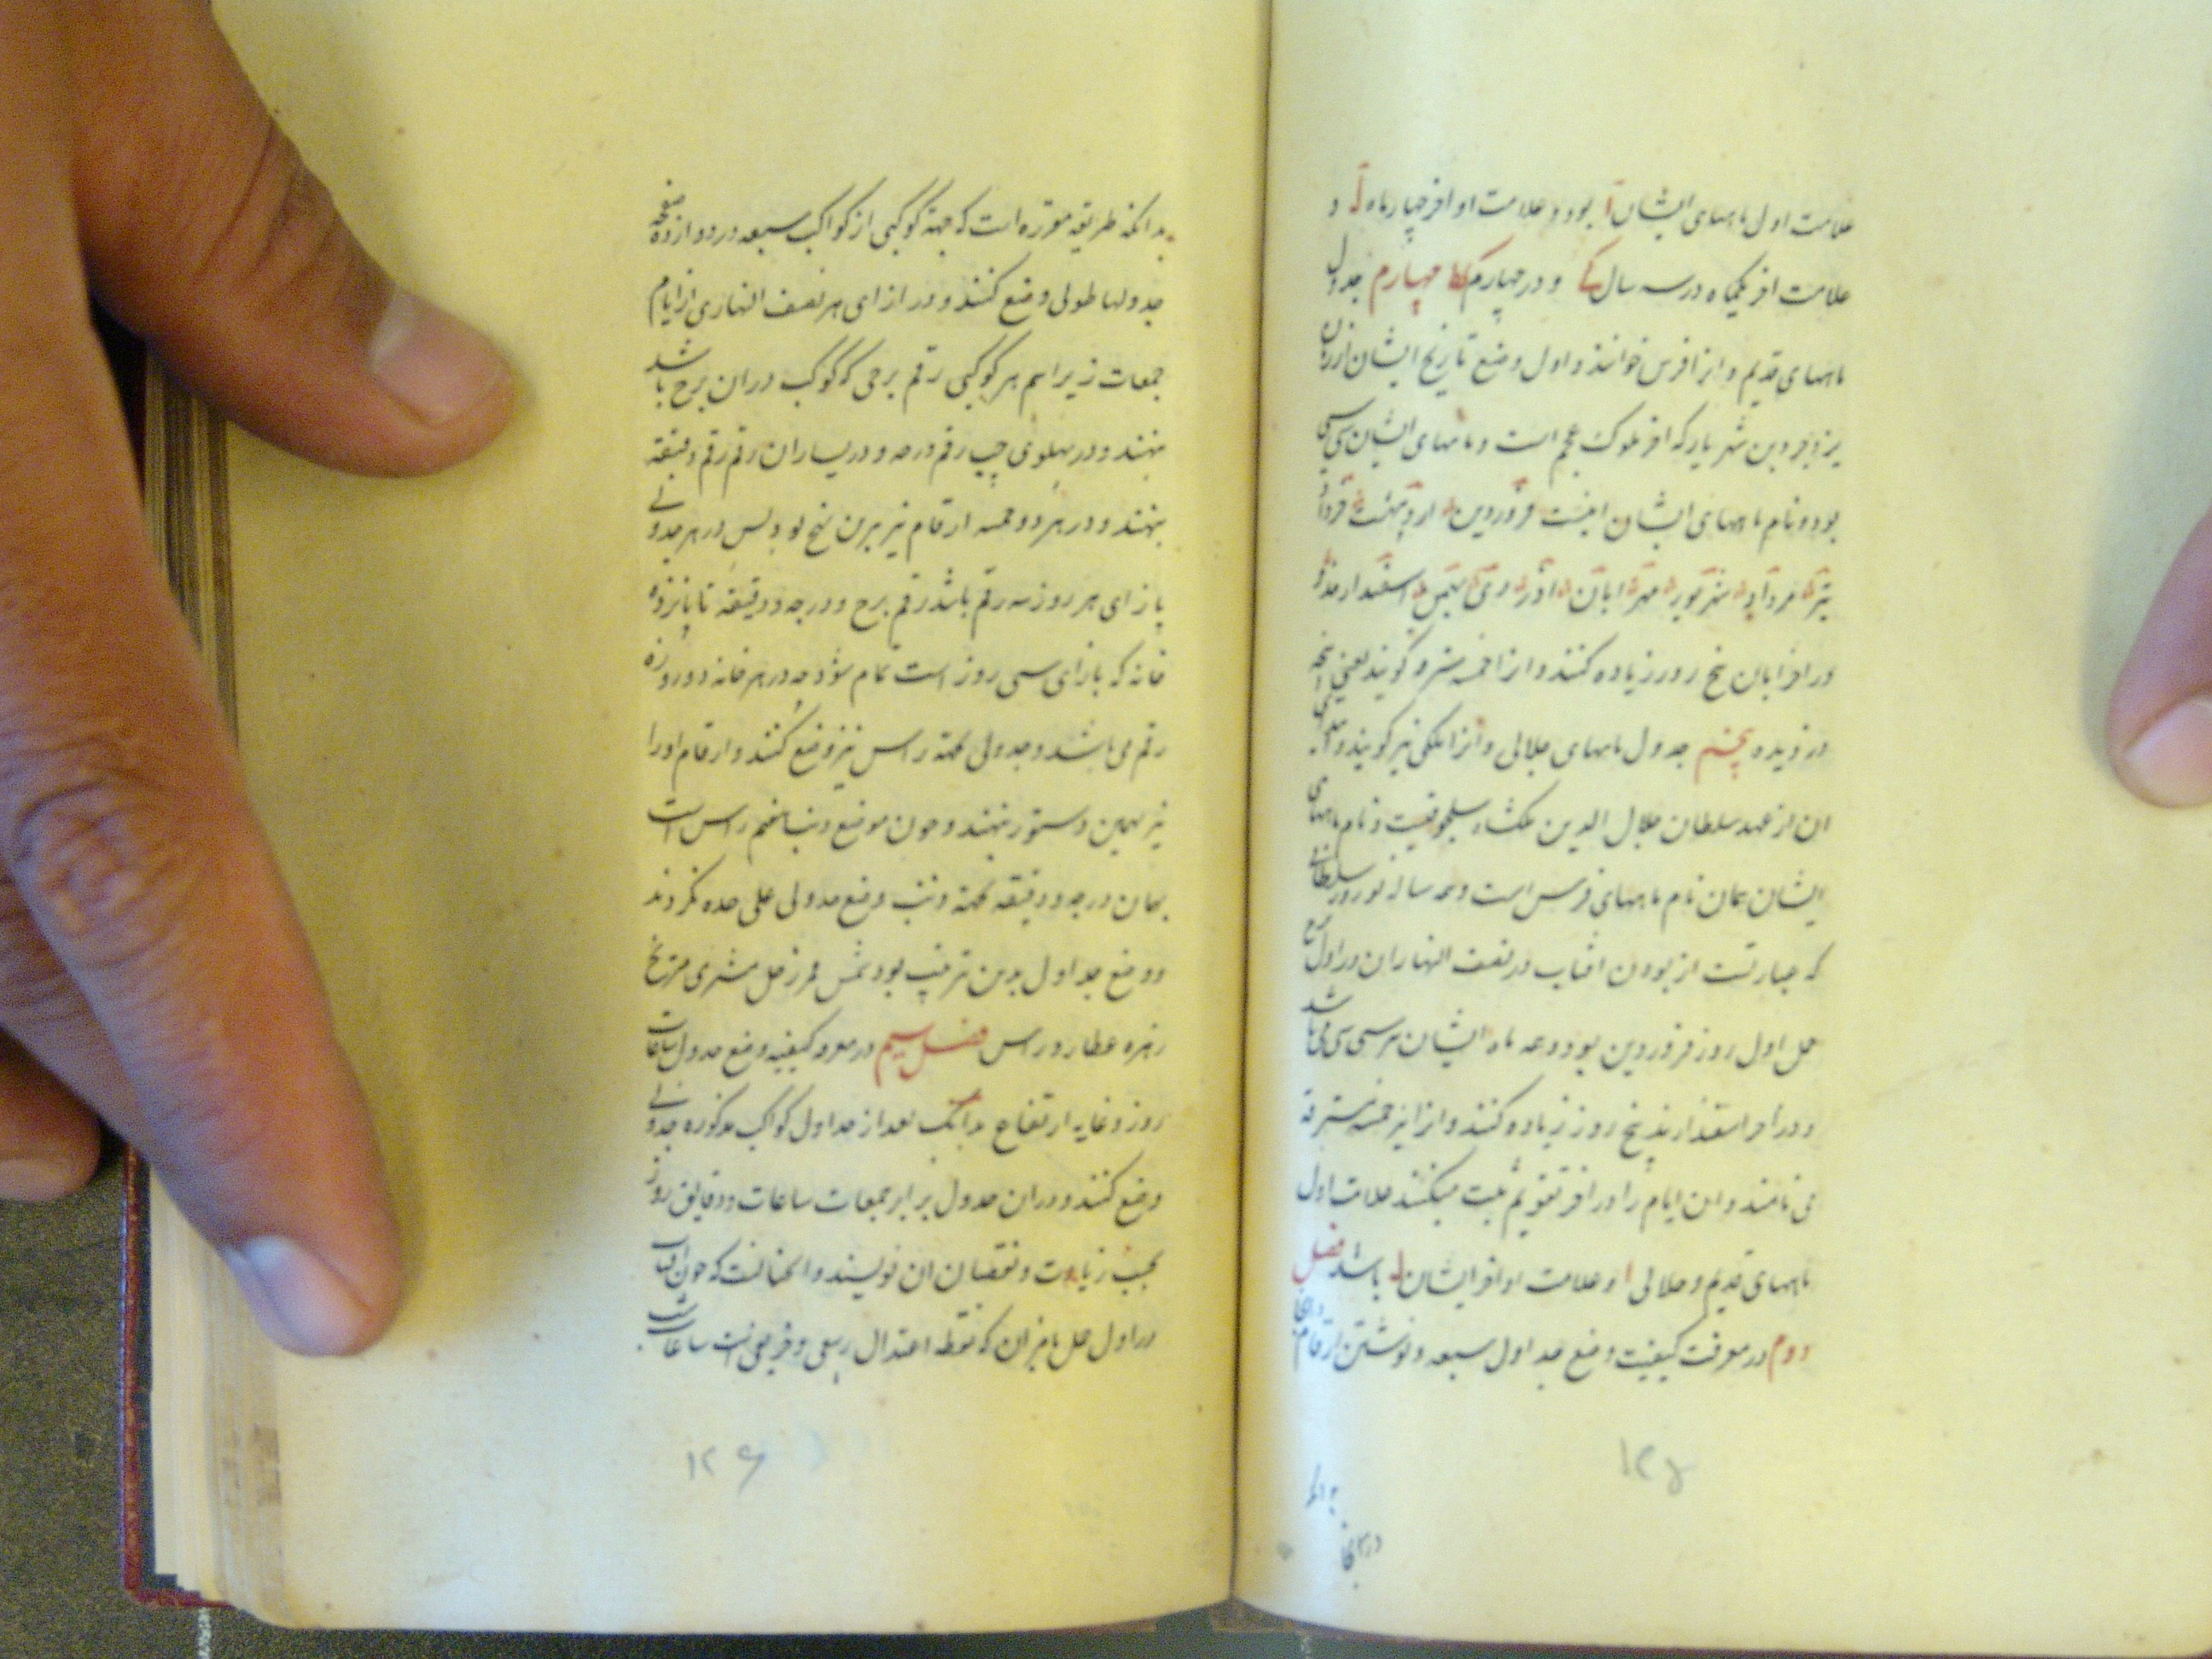 علامت اول ماههای ایشان ا بود و علامت اواخر چهار ماه ل و
علامت اخر یکماه در سه سال کح و در چهارم کط چهارم جدول
ماههای قدیم و انرا فرس خوانند و اول وضع تاریخ ایشان از زمان
یزدجرد بن شهریار که اخر ملوک عجم است و ماههای ایشان سی سی
بود و نام ماههای ایشان اینست فروردین اردیبهشت خرداد
تیر مرداد شهریور مهر ابان اذر دی بهمن اسفندارمذ و
در اخر ابان پنج روز زیاده کنند و انرا خمسه مسترقه گویند یعنی پنجه
دزدیده پنجم جدول ماههای جلالی و انرا ملکی نیز گویند و
ان از عهد سلطان جلال الدین ملکشاه سلجوقیست و نام ماههای
ایشان همان نام ماههای فرس است و همه ساله نوروز سلطانی
که عبارتست از بودن افتاب در نصف النهار ان در اول برج
حمل اول روز فروردین بود و همه ماه ایشان نیز سی سی می باشد
و در اخر اسفندارمذ پنج روز زیاده کنند و انرا نیز خمسه مسترقه
می نامند و ان ایام را در اخر تقویم ثبت میکنند علامت اول
ماههای قدیم و جلالی ا و علامت اواخر ایشان ل باشد فصل
دوم در معرفت کیفیت وضع جداول سبعه و نوشتن ارقام در انجا
۱۲۵
بدانکه
در انجا
بدانکه طریقه مقرره است که جهة کوکبی از کواکب سبعه در دوازده صفحه
جدولها طولی وضع کنند و در ازای هر نصف النهاری از ایام
جمعات زیر اسم هر کوکبی رقم برجی که کوکب در ان برج باشد
بنهند و در پهلوی چپ رقم درجه و در یسار ان رقم رقم دقیقه
بنهند و در هر دو خمسه ارقام نیز برین نهج بود پس در هر جدولی
بازای هر روز سه رقم باشد رقم برج و درجه و دقیقه تا پانزده
خانه که بازای سی روز است تمام شود چه در هر خانه دو روزه
رقم می باشد و جدولی جهة راس نیز وضع کنند و ارقام او را
نیز بهمین دستور بنهند و چون موضع ذنب هفتم راس است
بهمان درجه و دقیقه جهة ذنب وضع جدولی علی حده نکردند
و وضع جداول بدین ترتیب بود شمس قمر زحل مشتری مریخ
زهره عطارد راس فصل سیم در معرفه کیفیه وضع جدول ساعات
روز و غایه ارتفاع بدانک بعد از جداول کواکب مذکوره جدولی
وضع کنند و در ان جدول برابر جمعات ساعات و دقایق روز
بحسب زیادت و نقصان ان نویسند و انچنانست که چون افتاب
در اول حمل یا میزان که نقطه اعتدال ربیعی و خریفی است ساعات
۱۲۶